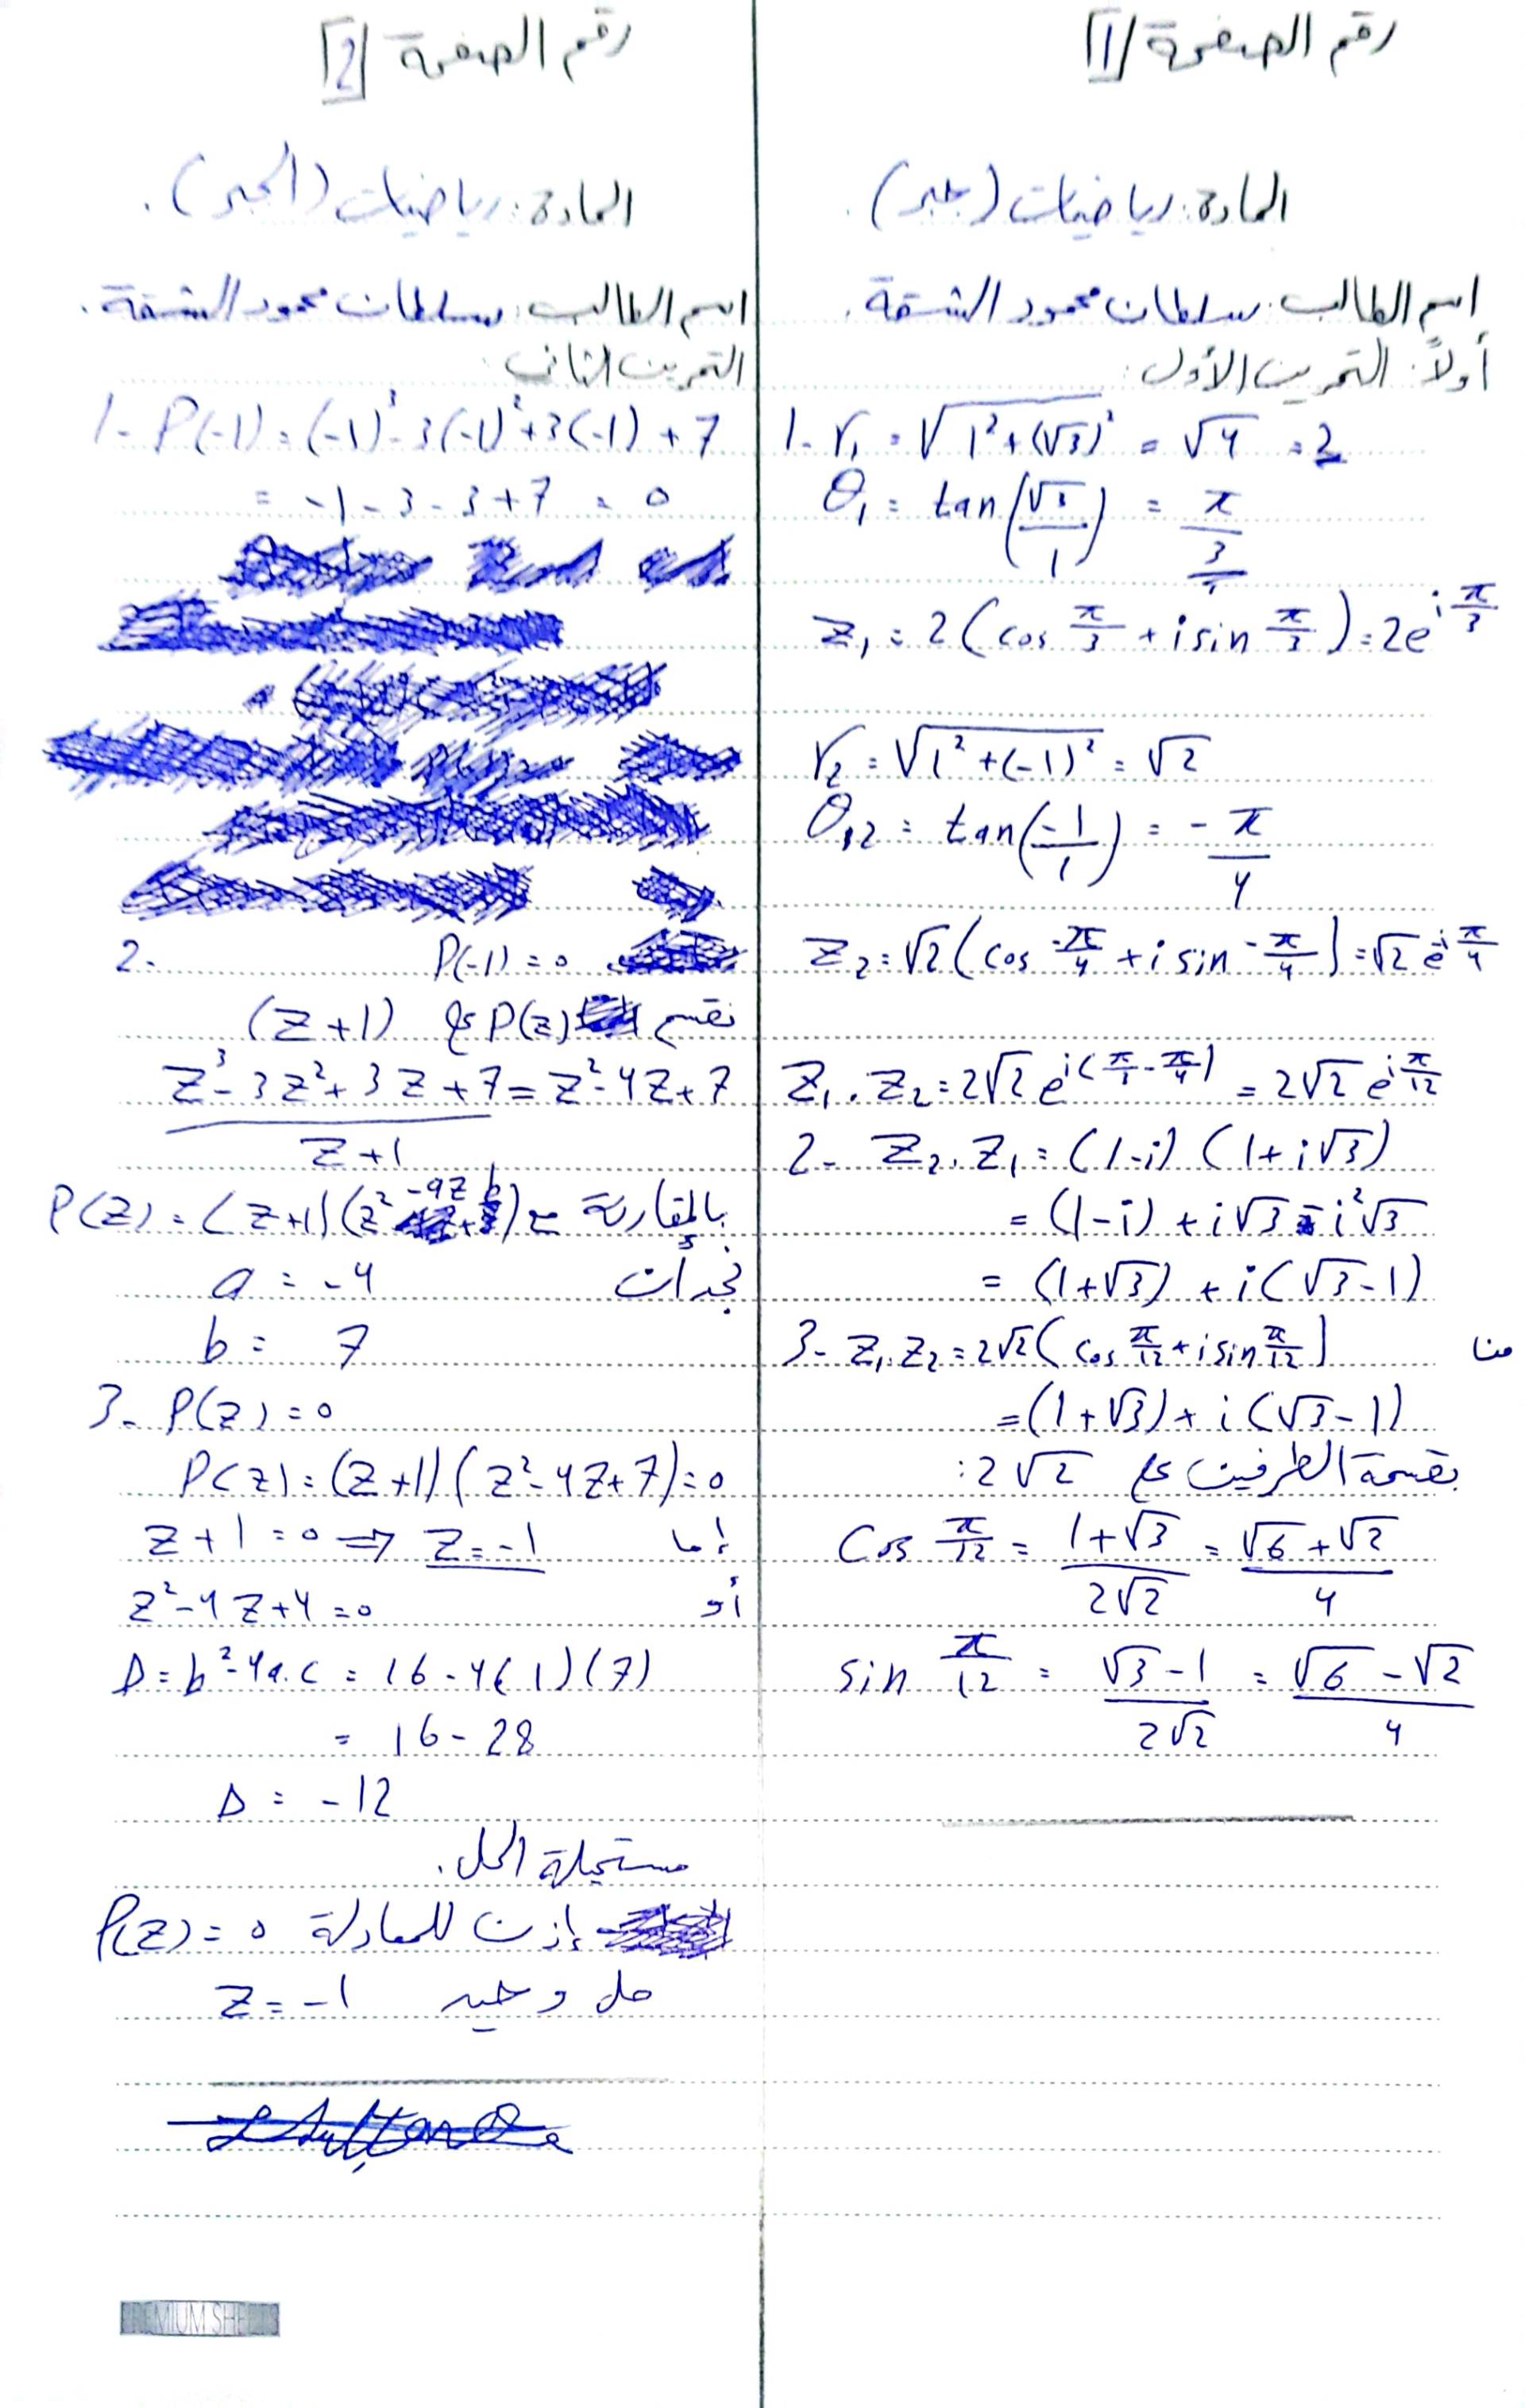 رقم الصفحة [1]
المادة: رياضيات (جبر).
اسم الطالب: سلطان محمود الشقة.
أولاً: التمرين الأول:
1- r₁ = √(1² + (√3)²) = √4 = 2
θ₁ = tan(√3/1) = π/3
z₁ = 2(cos π/3 + i sin π/3) = 2e^(i π/3)
r₂ = √(1² + (-1)²) = √2
θ₂ = tan(-1/1) = -π/4
z₂ = √2(cos -π/4 + i sin -π/4) = √2 e^(-i π/4)
z₁ . z₂ = 2√2 e^(i(π/3 - π/4)) = 2√2 e^(i π/12)
2- z₂ . z₁ = (1-i) (1+i√3)
= (1-i) + i√3 - i²√3
= (1+√3) + i(√3-1)
3- z₁ . z₂ = 2√2(cos π/12 + i sin π/12) منا
= (1+√3) + i(√3-1)
بقسمة الطرفين على 2√2:
cos π/12 = (1+√3)/(2√2) = (√6+√2)/4
sin π/12 = (√3-1)/(2√2) = (√6-√2)/4
رقم الصفحة [2]
المادة: رياضيات (الجبر).
اسم الطالب: سلطان محمود الشقة.
التمرين الثاني:
1- P(-1) = (-1)³ - 3(-1)² + 3(-1) + 7
= -1 - 3 - 3 + 7 = 0
2- P(-1) = 0
نقسم P(z) على (z+1)
(z³ - 3z² + 3z + 7)/(z+1) = z² - 4z + 7
بالمقارنة مع P(z) = (z+1)(z² - az b)
نجد أن a = -4
b = 7
3- P(z) = 0
P(z) = (z+1)(z² - 4z + 7) = 0
إما z+1 = 0 ⇒ z = -1
أو z² - 4z + 4 = 0
Δ = b² - 4a.c = 16 - 4(1)(7)
= 16 - 28
Δ = -12
مستحيلة الحل.
إذن للمعادلة P(z) = 0
حل وحيد z = -1